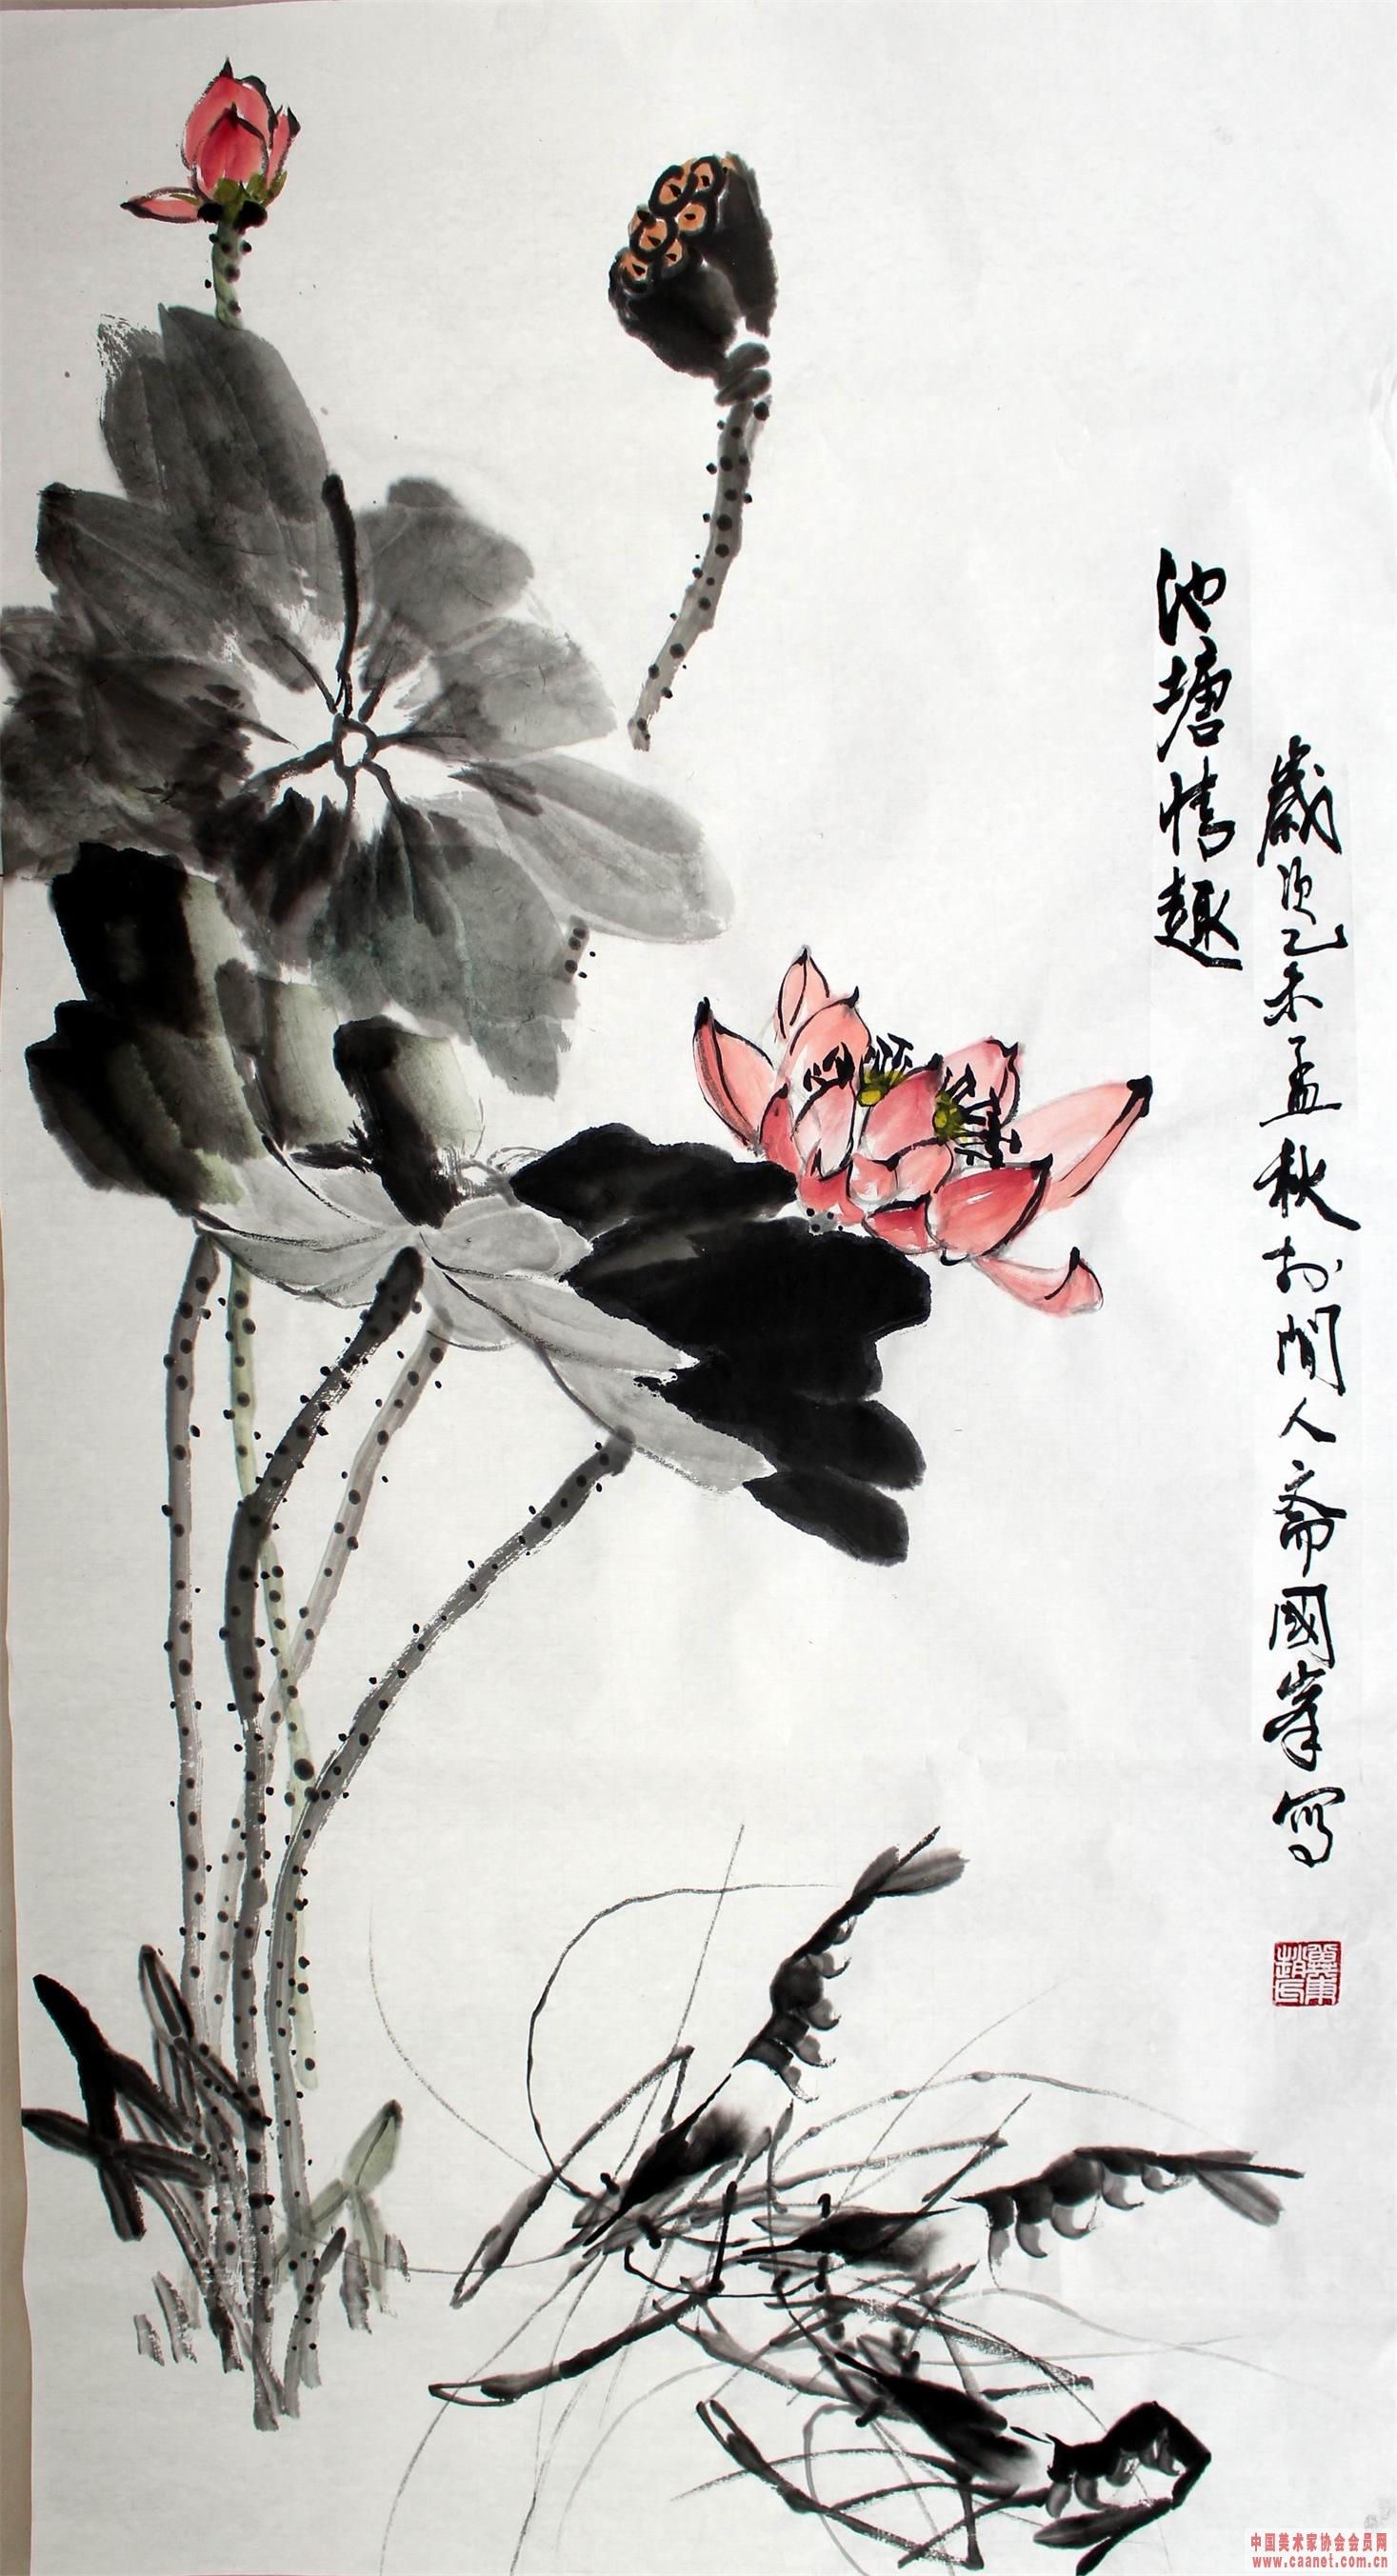 池塘情趣
歲次乙未孟秋於閒人齋國峯寫
中国美术家协会会员网
www.caanet.com.cn